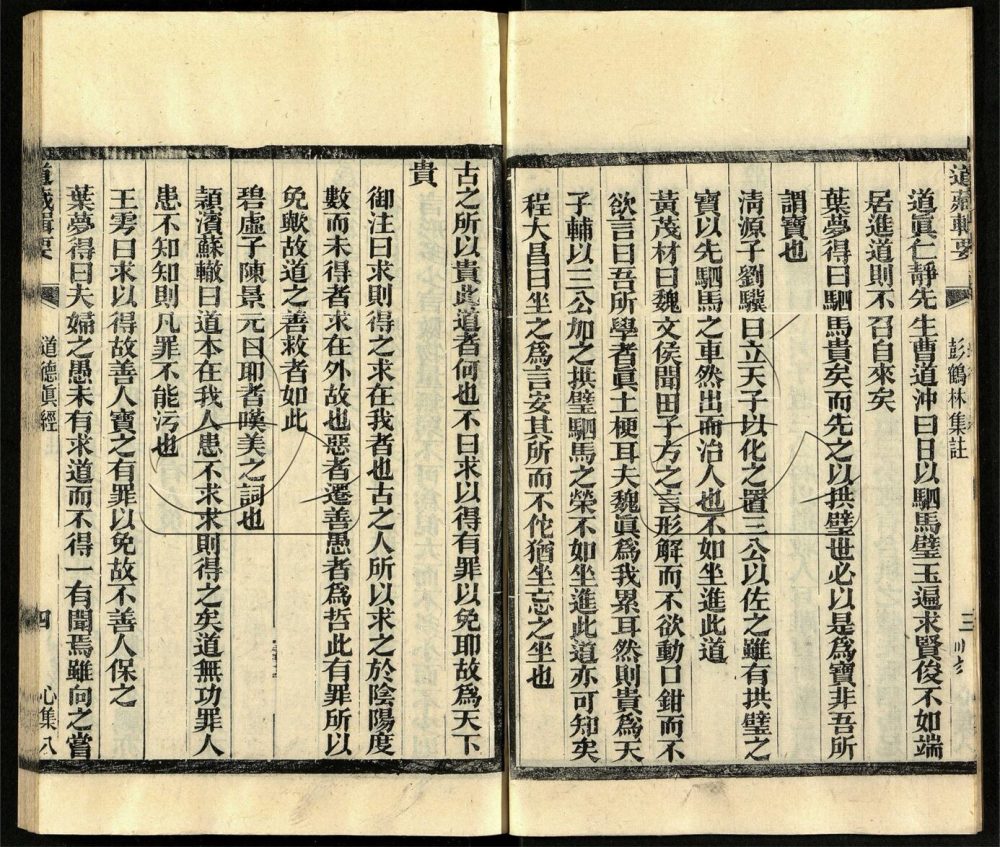 道藏輯要
彭鶴林集註
三
道眞仁靜先生曹道沖曰日以駟馬璧玉遍求賢俊不如端
居進道則不召自來矣
葉夢得曰駟馬貴矣而先之以拱璧世必以是爲寶非吾所
謂寶也
淸源子劉驥曰立天子以化之置三公以佐之雖有拱璧之
寶以先駟馬之車然出而治人也不如坐進此道
黃茂材曰魏文侯聞田子方之言形解而不欲動口鉗而不
欲言曰吾所學者眞土梗耳夫魏眞爲我累耳然則貴爲天
子輔以三公加之拱璧駟馬之榮不如坐進此道亦可知矣
程大昌曰坐之爲言安其所而不佗猶坐忘之坐也
古之所以貴此道者何也不曰求以得有罪以免耶故爲天下
貴
御注曰求則得之求在我者也古之人所以求之於陰陽度
數而未得者求在外故也惡者遷善愚者爲哲此有罪所以
免歟故道之善救者如此
碧虛子陳景元曰耶者嘆美之詞也
頴濱蘇轍曰道本在我人患不求求則得之矣道無功罪人
患不知知則凡罪不能污也
王雱曰求以得故善人寶之有罪以免故不善人保之
葉夢得曰夫婦之愚未有求道而不得一有聞焉雖向之嘗
道藏輯要
道德眞經
四
心集八